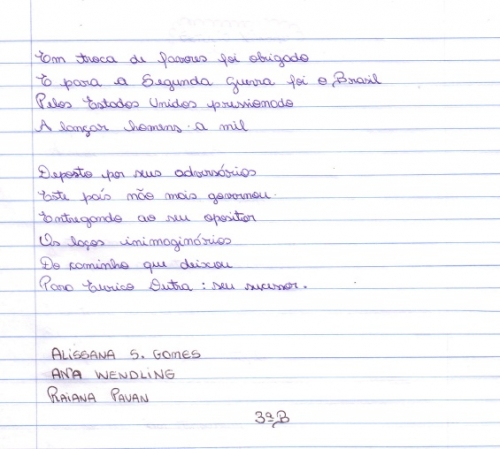 Em troca de favores foi obrigado
E para a Segunda Guerra foi o Brasil
Pelos Estados Unidos pressionado
A lançar homens a mil
Deposto por seus adversários
Este país não mais governou.
Entregando ao seu opositor
Os laços inimaginários
Do caminho que deixou
Para Eurico Dutra: seu sucessor.
ALISSANA S. GOMES
ANA WENDLING
RAIANA PAVAN
3ª B